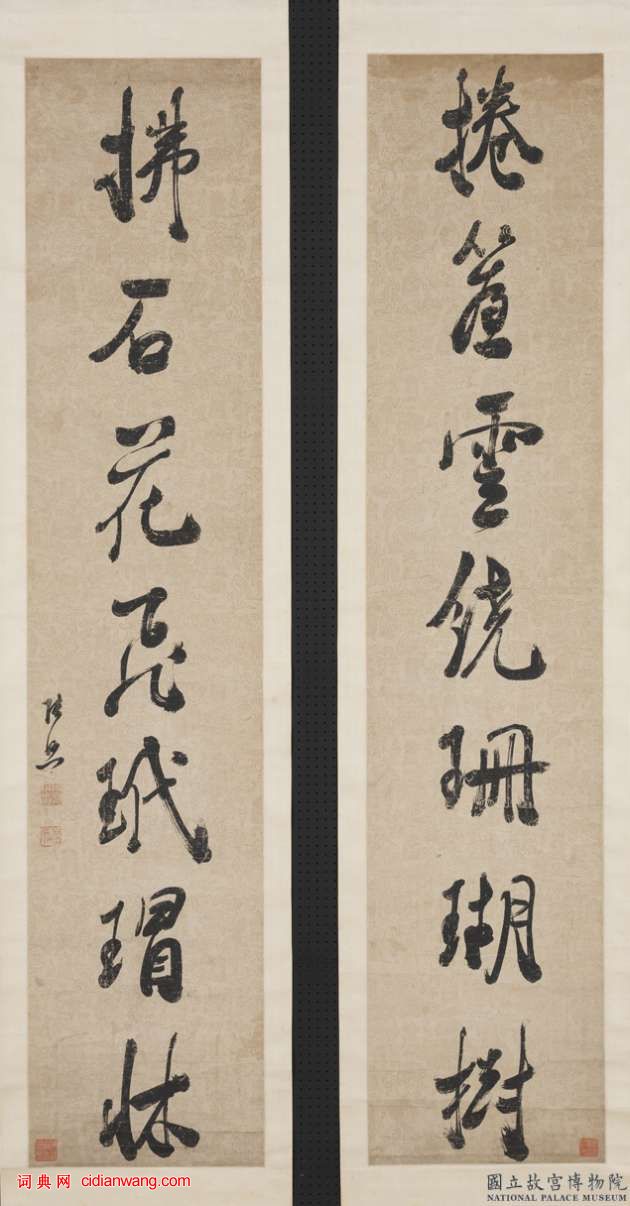 捲簾雲繞珊瑚樹
拂石花飛玳瑁牀
張照
國立故宮博物院
NATIONAL PALACE MUSEUM
词典网 cidianwang.com